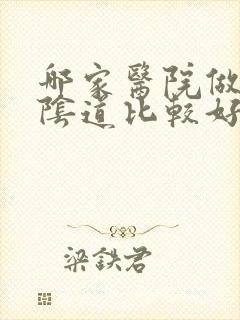 哪家醫院做
陰道比較好
梁鉄君